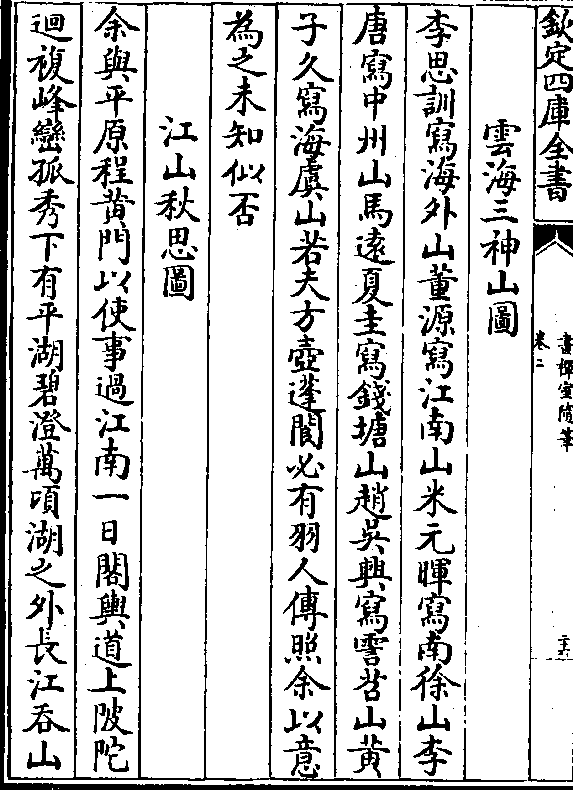 欽定四庫全書
畫禪室隨筆
卷二
雲海三神山圖
李思訓寫海外山董源寫江南山米元暉寫南徐山李
唐寫中州山馬遠夏圭寫錢塘山趙吳興寫霅苕山黃
子久寫海虞山若夫方壺蓬閬必有羽人傳照余以意
為之未知似否
江山秋思圖
余與平原程黃門以使事過江南一日閣輿道上陂陀
迴複峰巒孤秀下有平湖碧澄萬頃湖之外長江吞山